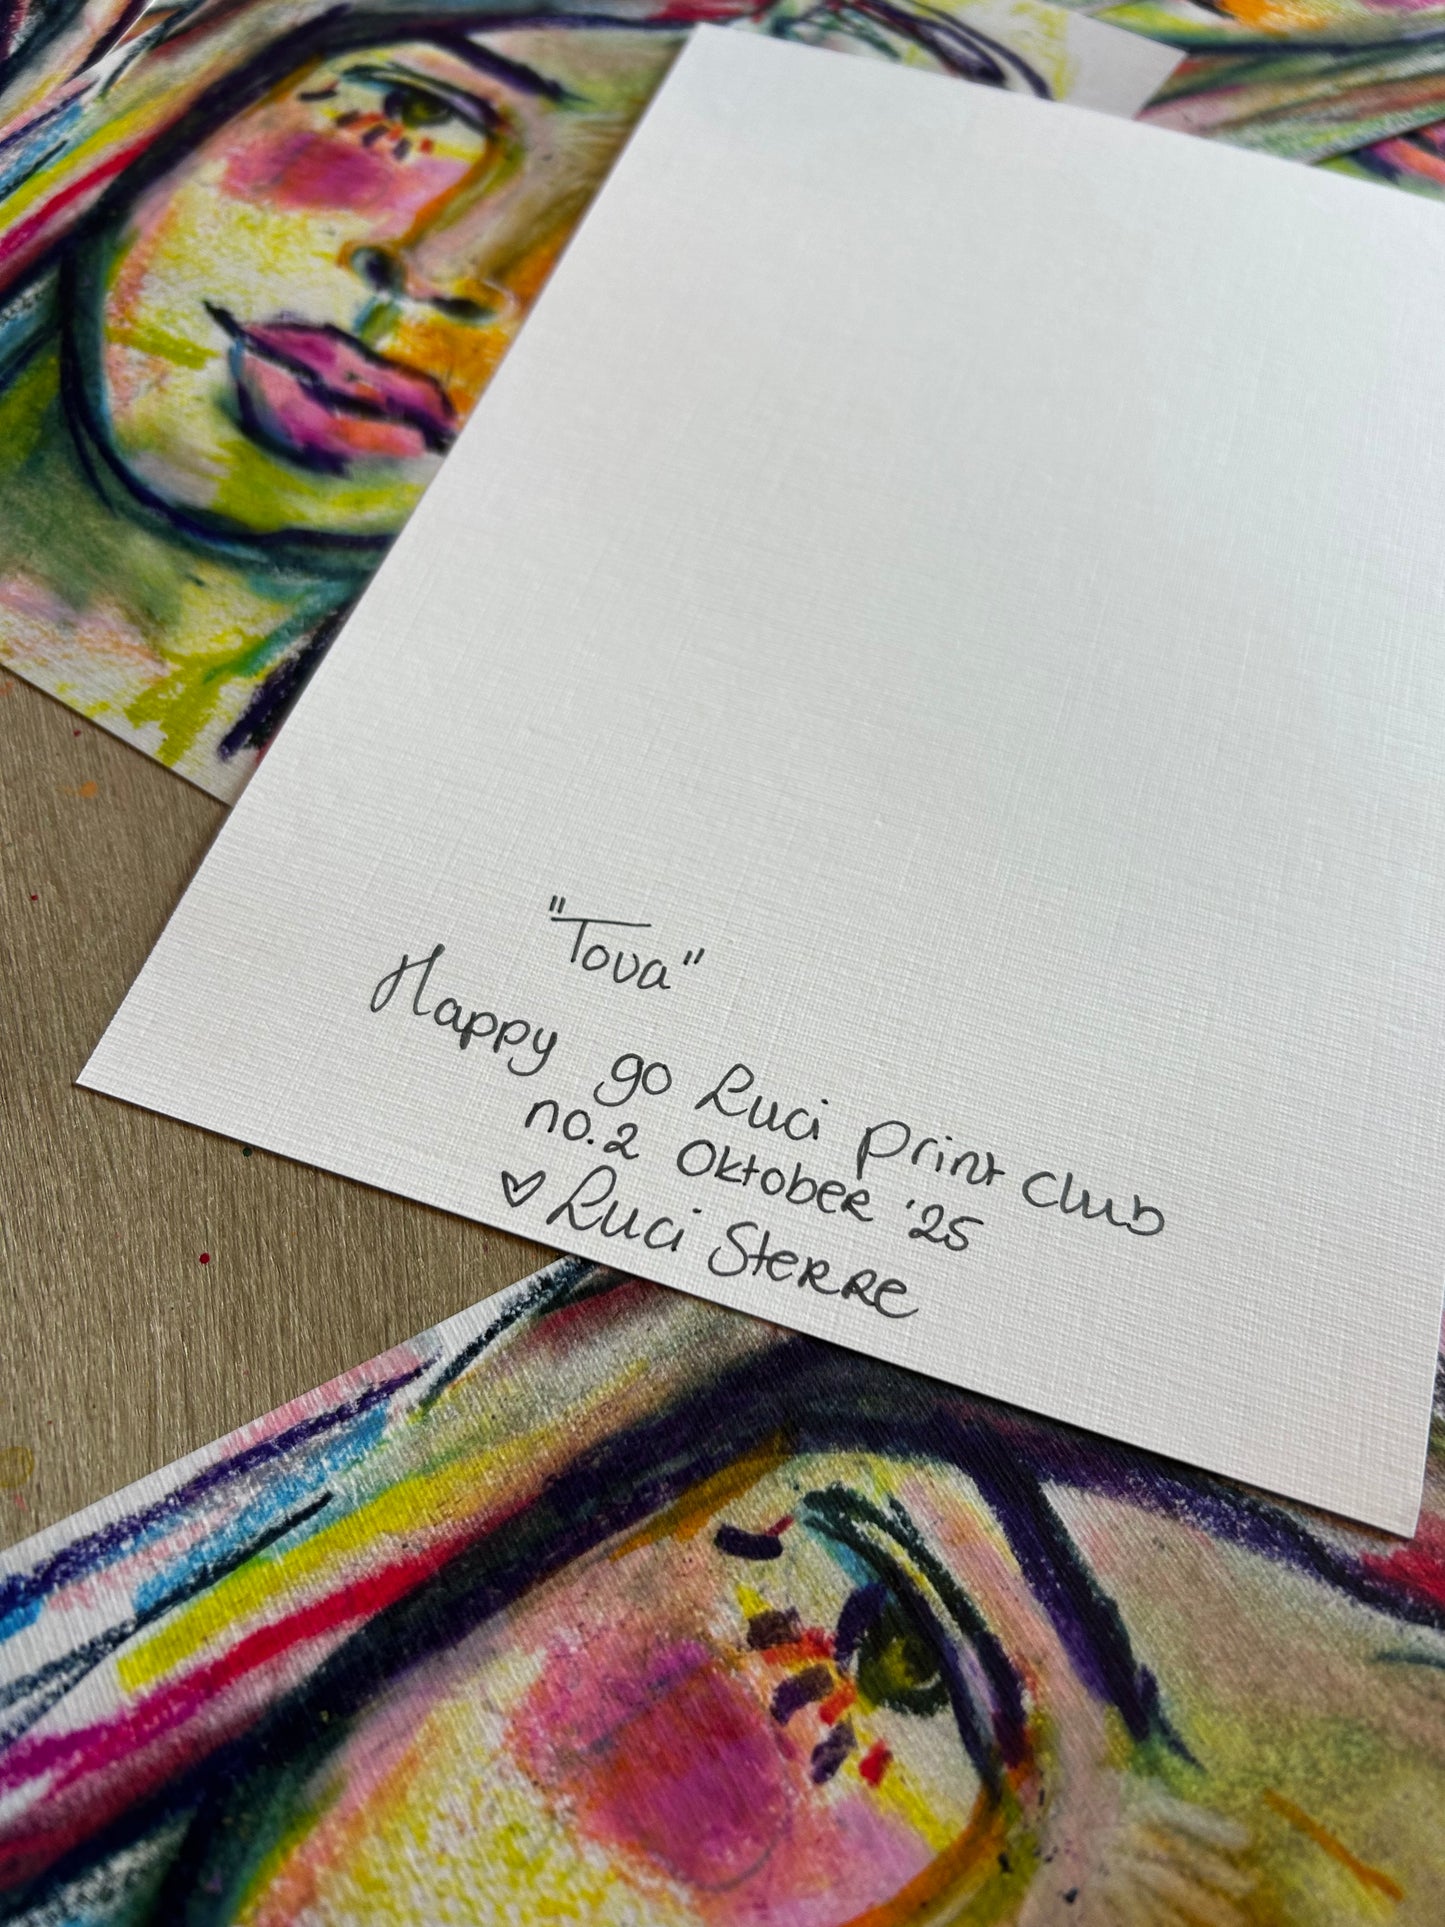 "Tova"
Happy go Luci print club
no.2 Oktober '25
♡ Luci Sterre